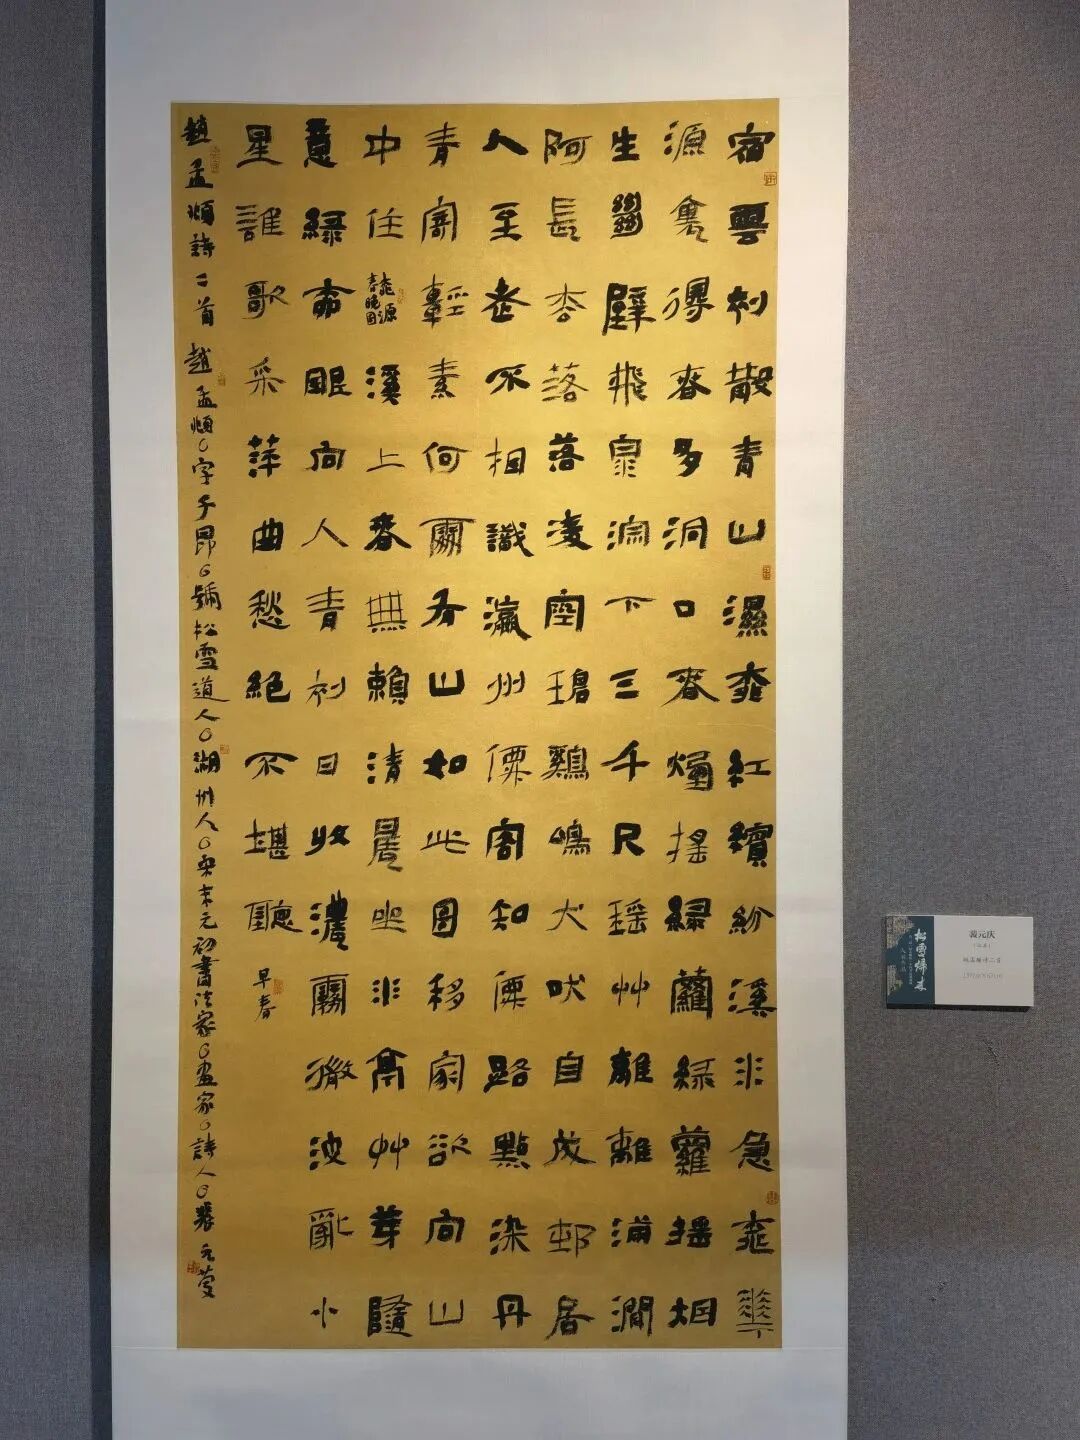 宿雲初散青山濕桃紅繽紛溪水急桃花
源裏得春多洞口春煙搖緑蘿緑蘿搖烟
生𢇍壁飛泉淙下三千尺瑤艸離離滿澗
阿長松落落凌空碧鷄鳴犬吠自成邨居
人至老不相識瀛州僊客知僊路點染丹
青寄輕素何有山如此圖移家欲向山
中住 桃源春曉圖 溪上春無賴清晨坐水亭艸芽隨
意緑柳眼向人青初日收濃霧微波亂小
星誰歌采萍曲愁絕不堪聽 早春
趙孟頫詩二首 趙孟頫○字子昂○號松雪道人○湖州人○宋末元初書法家○畫家○詩人○裴元慶
松雪歸來
裴元庆
赵孟頫诗二首